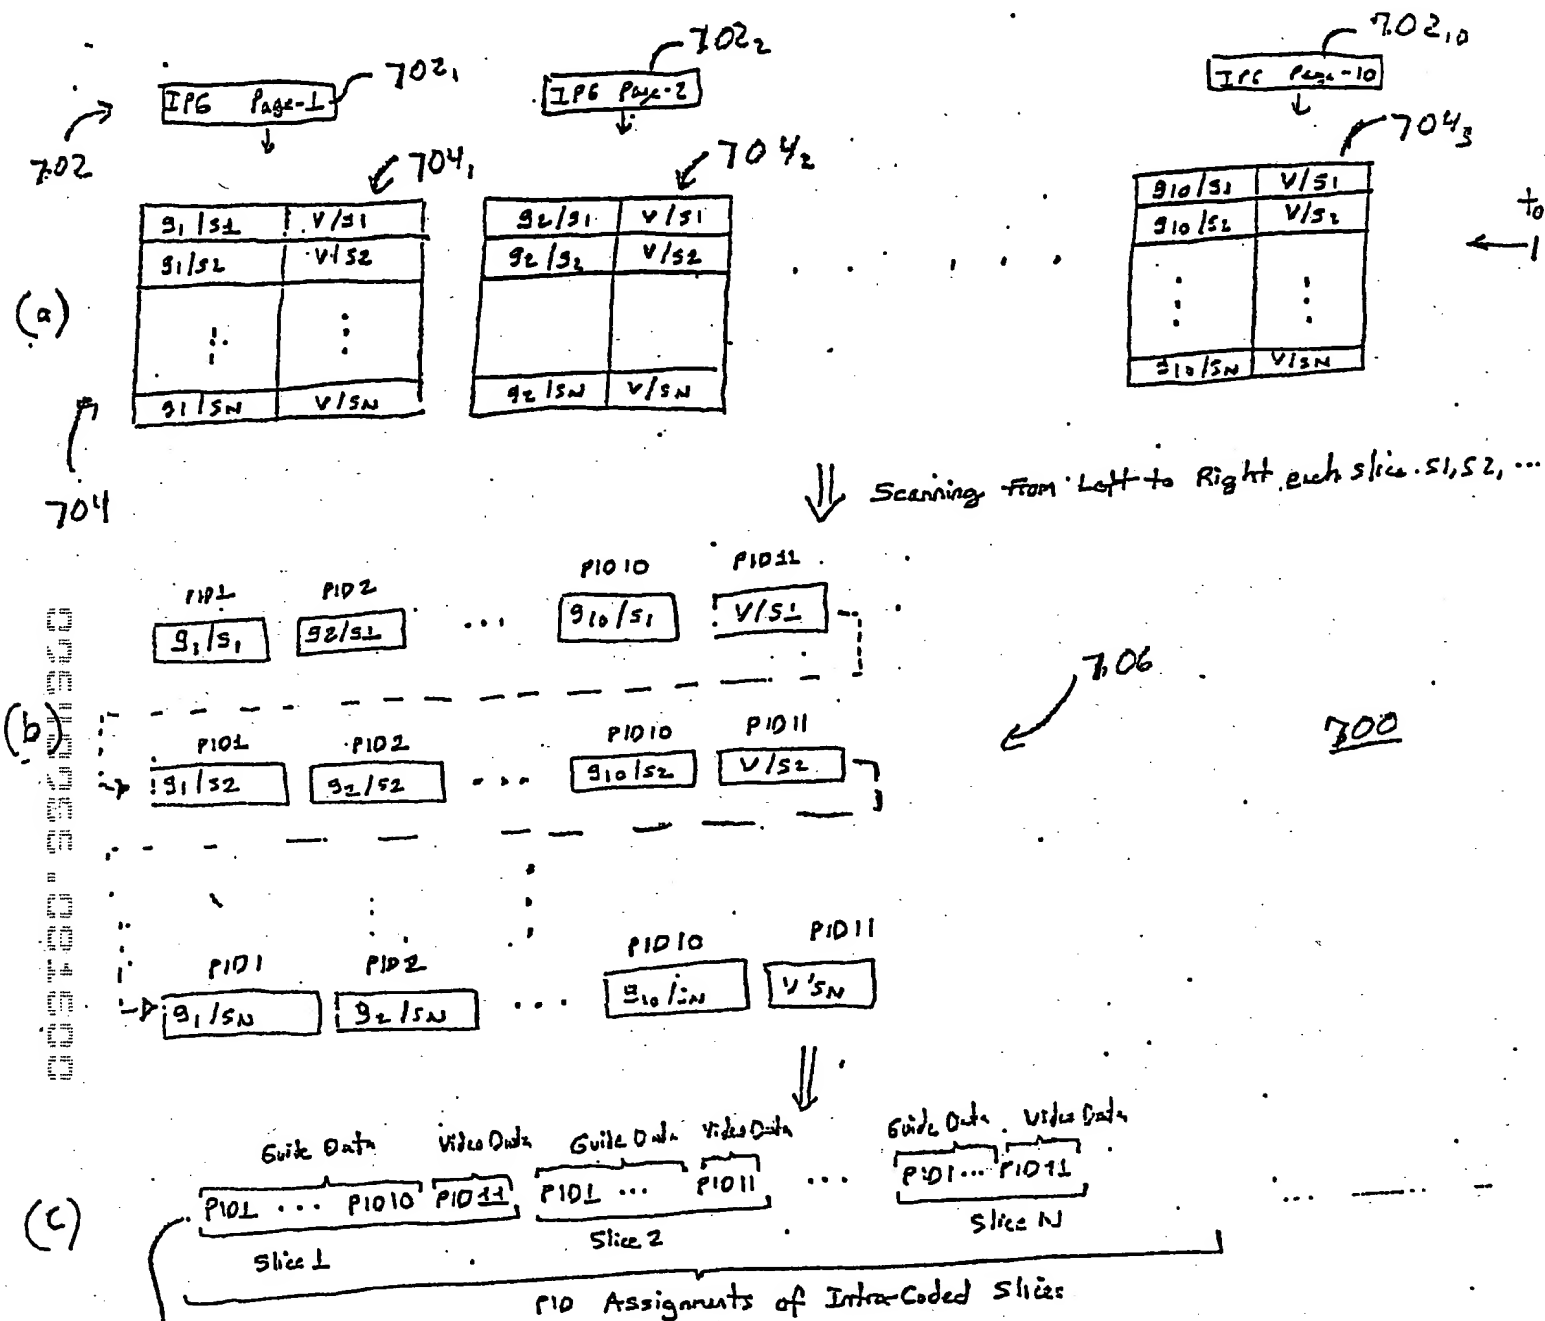 702₁
702₂
702₁₀
IPG Page-1
IPG Page-2
IPG Page-10
702
704₁
704₂
704₃
g₁/s1 V/s1
g₁/s2 V/s2
g₁/sN V/sN
g2/s1 V/s1
g2/s2 V/s2
g2/sN V/sN
g10/s1 V/s1
g10/s2 V/s2
g10/sN V/sN
t₀
(a)
704
Scanning From Left to Right each slice S1, S2, ...
PID1 PID2 PID10 PID11
g₁/s₁ g2/s1 ... g10/s₁ V/s1
706
(b)
PID1 PID2 PID10 PID11
g1/s2 g2/s2 ... g10/s2 V/s2
700
PID1 PID2 PID10 PID11
g1/sN g2/sN ... g10/sN V/sN
Guide Data Video Data Guide Data Video Data Guide Data Video Data
(c)
PID1 ... PID10 PID11 PID1 ... PID11 ... PID1... PID11
Slice 1 Slice 2 Slice N
PID Assignments of Intra-Coded Slices